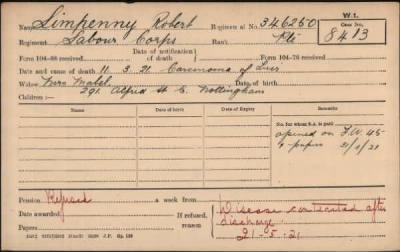 W.I.
Name Simpenny Robert Regimental No. 346250 Case No.
Regiment Labour Corps Rank Pte 8413
Form 104—88 received Date of notification of death Form 104—76 received
Date and cause of death 11.3.21 Carcinoma of Liver
Widow Mrs Mabel Date of birth
Children:— 291 Alfred St C. Nottingham
Name Date of birth Date of Expiry Remarks
opened on F.W. 45
papers 21/4/21
Pension Refused a week from
Date awarded If refused, reason Disease contracted after discharge
Papers 21-5-21